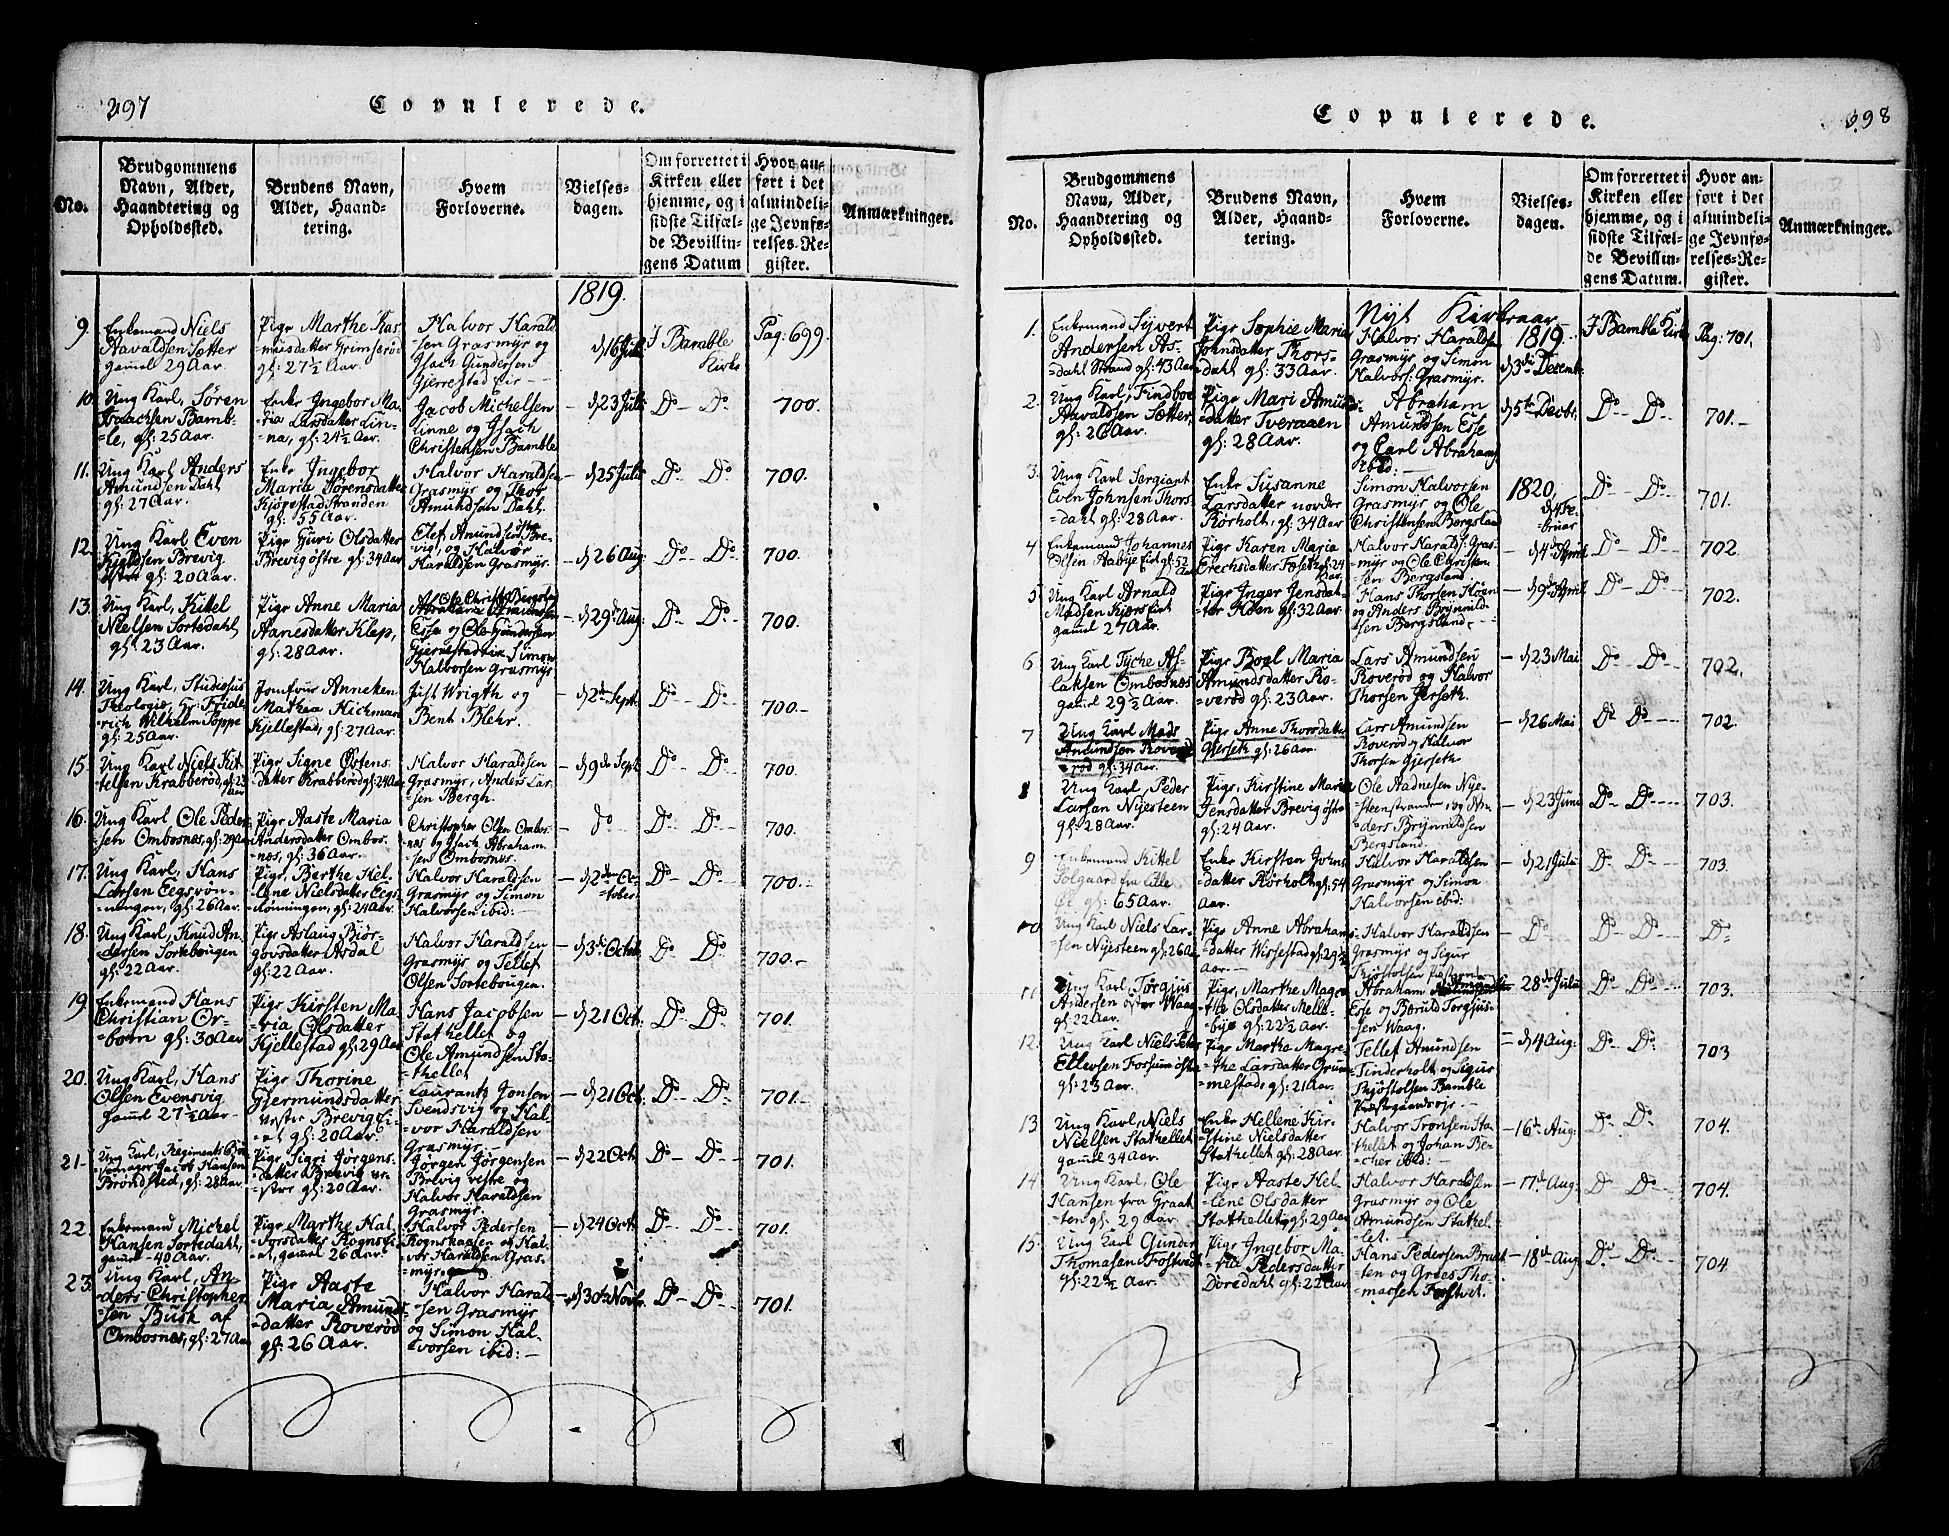 297
Copulerede.
No.
Brudgommens Navn, Alder, Haandtering og Opholdssted.
Brudens Navn, Alder, Haandtering.
Hvem Forloverne.
Vielsesdagen.
Om forrettet i Kirken eller hjemme, og i sidste Tilfælde Bevillingens Datum
Hvor anført i det almindelige Jevnførelses-Register.
Anmærkninger.
1819.
9. Enkemand Niels Aavaldsen Sotter gamel 29 Aar
Pige Marthe Rasmusdatter Grimserød gl: 27½ Aar.
Halvor Haraldsen Grasmyr og Isach Gundersen Gjerrestad Eie
d 16 Juli
I Bamble Kirke
Pag. 699.
10. Ung Karl, Søren Isaachsen Bamble, gl: 25 Aar.
Enke Ingebor Maria Larsdatter Linna, gl: 24½ Aar.
Jacob Michelsen Linne og Isach Christensen Bamble
d 23 Juli
Do Do
700.
11. Ung Karl Anders Amundsen Dahl gl: 27 Aar.
Enke Ingebor Maria Sørensdatter Kjørestad Stranden gl: 55 Aar.
Halvor Haraldsen Grasmyr og Thor Amundsen Dahl.
d 25 Juli
Do Do
700.
12. Ung Karl Even Kjeldsen Brevig østre gl: 20 Aar.
Pige Guri Olsdatter Brevig østre gl: 34 Aar
Elef Amundsen østre Brevig, og Halvor Haraldsen Grasmyr.
d 26 Aug.
Do Do
700.
13. Ung Karl, Kittel Nielsen Sortedahl gl: 23 Aar.
Pige Anne Maria Aanesdatter Klep, gl: 28 Aar.
Esse og Ole Gundersen Gjerrestadvie Simon Halvorsen Grasmyr
d 29de Aug.
Do Do
700.
14. Ung Karl, Studiosus Theologie, Hr: Friderich Wilhelm Poppe gl: 25 Aar.
Jomfrue Anneken Mathea Hichman Kjellestad, gl: 27 Aar.
Just Wrigth og Bent Blehr.
d 2de Sept.
Do Do
700.
15. Ung Karl Niels Kittelsen Krabberød, gl: 23 Aar
Pige Signe Østensdatter Krabberød gl: 24 Aar
Halvor Haraldsen Grasmyr, Anders Larsen Bergh.
d 9de Sept.
Do Do
700.
16. Ung Karl Ole Pedersen Ombosnes, gl: 29 Aar
Pige Aaste Maria Andersdatter Ombosnes, gl: 36 Aar.
Christopher Olsen Ombosnes og Isach Abrahamsen Ombosnes.
do
Do Do
700.
17. Ung Karl, Hans Larsen Eegsrønningen, gl: 26 Aar.
Pige, Berthe Hellene Nielsdatter Eigsrønningen, gl: 24 Aar.
Halvor Haraldsen Grasmyr og Simon Halvorsen ibid:
d 2den October
Do Do
700.
18. Ung Karl, Knud Andersen Sortebougen gl: 22 Aar.
Pige Aslaug Biørgovsdatter Asdal gl: 22 Aar.
Halvor Haraldsen Grasmyr og Tellef Olsen Sortebougen.
d 3de Octob.
Do Do
700.
19. Enkemand Hans Christian Orborn gl: 30 Aar
Pige Kirsten Maria Olsdatter Kjellestad gl: 29 Aar
Hans Jacobsen Stathellet og Ole Amundsen Stathellet
d 21 Oct.
Do Do
701.
20. Ung Karl, Hans Olsen Evensvig gamel 27½ Aar
Pige Thorine Gjermundsdatter vestre Brevig Eiat gl: 20 Aar.
Laurantz Jonsen Svendsvig og Halvor Haraldsen Grasmyr.
d 21 Oct.
Do Do
701.
21. Ung Karl, Regiments Bøssemager Jacob Hansen Brøndsted, gl: 28 Aar.
Pige Sigri Jørgensdatter Brevig vestre gl: 20 Aar.
Jørgen Jørgensen Brevig vestre og Halvor Haraldsen Grasmyr.
d 22 Oct.
Do Do
701.
22. Enkemand Michel Hansen Sortedahl, gamel 40 Aar.
Pige Marthe Halforsdatter Rognsfiat, gamel 26 Aar.
Halvor Pedersen Rognskaasen og Halvor Haraldsen Grasmyr.
d 24 Oct.
Do Do
701.
23. Ung Karl, Anders Christophersen Busk af Ombosnes, gl: 27 Aar
Pige Aaste Maria Amundsdatter Roverød gl: 26 Aar.
Halvor Haraldsen Grasmyr og Simon Halvorsen ibid:
d 30te Novbr.
Do Do
701.
298
Copulerede.
No.
Brudgommens Navn, Alder, Haandtering og Opholdssted.
Brudens Navn, Alder, Haandtering.
Hvem Forloverne.
Vielsesdagen.
Om forrettet i Kirken eller hjemme, og i sidste Tilfælde Bevillingens Datum.
Hvor anført i det almindelige Jevnførelses-Register.
Anmærkninger.
Nyt Kirkeaar
1. Enkemand Syvert Andersen Asdahl Strand gl: 43 Aar
Pige Sophie Maria Johnsdatter Thorsdahl gl: 33 Aar.
Halvor Haraldsen Grasmyr og Simon Halvors: Grasmyr.
1819.
d 3de Decemb:
I Bamble Kirk
Pag: 701.
2. Ung Karl, Findboe Aavaldsen Sotter, gl: 26 Aar.
Pige Mari Amundsdatter Tveraaen gl: 28 Aar.
Abraham Amundsen Esse og Carl Abrahams. ibid:
d 5te Decbr.
Do Do
701.
3. Ung Karl Sergiant Even Johnsen Thorsdahl gl: 28 Aar.
Enke Susanne Larsdatter nordre Rørholt, gl: 34 Aar
Simon Halvorsen Grasmyr og Ole Christensen Bergsland
1820
d 4 Februar
Do Do
701.
4. Enkemand Johannes Olsen Aabye Eie gl: 52 Aar
Pige Karen Maria Erichsdatter Foseth gl: 24 Aar.
Halvor Haralds: Grasmyr og Ole Christensen Bergsland
d 4de April
Do Do
702.
5. Ung Karl Arnald Madsen Kjærs Eie gamel 27 Aar.
Pige Inger Jensdatter Høen gl: 32 Aar.
Hans Thorsen Høen og Anders Brynnildsen Bergsland.
d 9de April
Do Do
702.
6 Ung Karl Tyche Aslaksen Ombosnes gamel 29½ Aar.
Pige Boel Maria Amundsdatter Roverød gl: 23 Aar.
Lars Amundsen Roverød og Halvor Thorsen Gjerseth.
d 23 Mai
Do Do
702.
7 Ung Karl Mads Amundsen Roverød gl: 34 Aar.
Pige Anne Thorsdatter Gjerseth gl: 26 Aar.
Lars Amundsen Roverød og Halvor Thorsen Gjerseth
d 26 Mai
Do Do
702.
8 Ung Karl, Peder Larsen Nyesteen gl: 28 Aar.
Pige, Kirstine Maria Jensdatter Brevig østre gl: 24 Aar.
Ole Aadnesen Nyesteenstrander, og Anders Brynnildsen Bergsland.
d 23 Juni
Do Do
703.
9 Enkemand Kittel Solgaard fra Lille Øe gl: 65 Aar.
Enke Kirsten Johnsdatter Rørholt gl: 54 Aar.
Halvor Haraldsen Grasmyr og Simon Halvorsen ibid:
d 21 Juli
Do Do
703.
10. Ung Karl Niels Larsen Nyesteen gl: 26 Aar
Pige Anne Abrahamsdatter Wissestad gl: 29½ Aar.
Halvor Haraldsen Grasmyr og Sigur
Do
Do Do
Do
11 Ung Karl, Torgius Andersen østre Waag gl: 22 Aar.
Pige, Marthe Magrethe Olsdatter Mellebye gl: 22½ Aar.
Abraham Esse og Børuld Torgjussen Waag.
28de Juli
Do Do
703.
12. Ung Karl Niels Peter Ellevsen Fossum østre gl: 23 Aar.
Pige Marthe Magrethe Larsdatter Grummestad, gl: 21 Aar.
Tellef Amundsen Tinderholt og Sigur Thjøstolsen Bamble Præstegaardseje.
d 4 Aug:
Do Do
703
13 Ung Karl, Niels Nielsen Stathellet gamel 34 Aar.
Enke Hellene Kirstine Nielsdatter Stathellet gl: 28 Aar.
Halvor Tronsen Stathellet og Johan Becher ibid:
16de Aug:
Do Do
704.
14 Ung Karl, Ole Hansen fra Graaten gl: 29 Aar.
Pige Aaste Hellene Olsdatter Stathellet gl: 29 Aar
Halvor Haraldsen Grasmyr og Ole Amundsen Stathellet.
17de Aug.
Do Do
704.
15. Ung Karl Gunder Thomasen Fostved gl: 22½ Aar.
Pige Ingebor Maria Pedersdatter Dørdahl gl: 22 Aar.
Hans Pedersen Braaten og Groes Thomassen Fostvet.
18de Aug.
Do Do
704